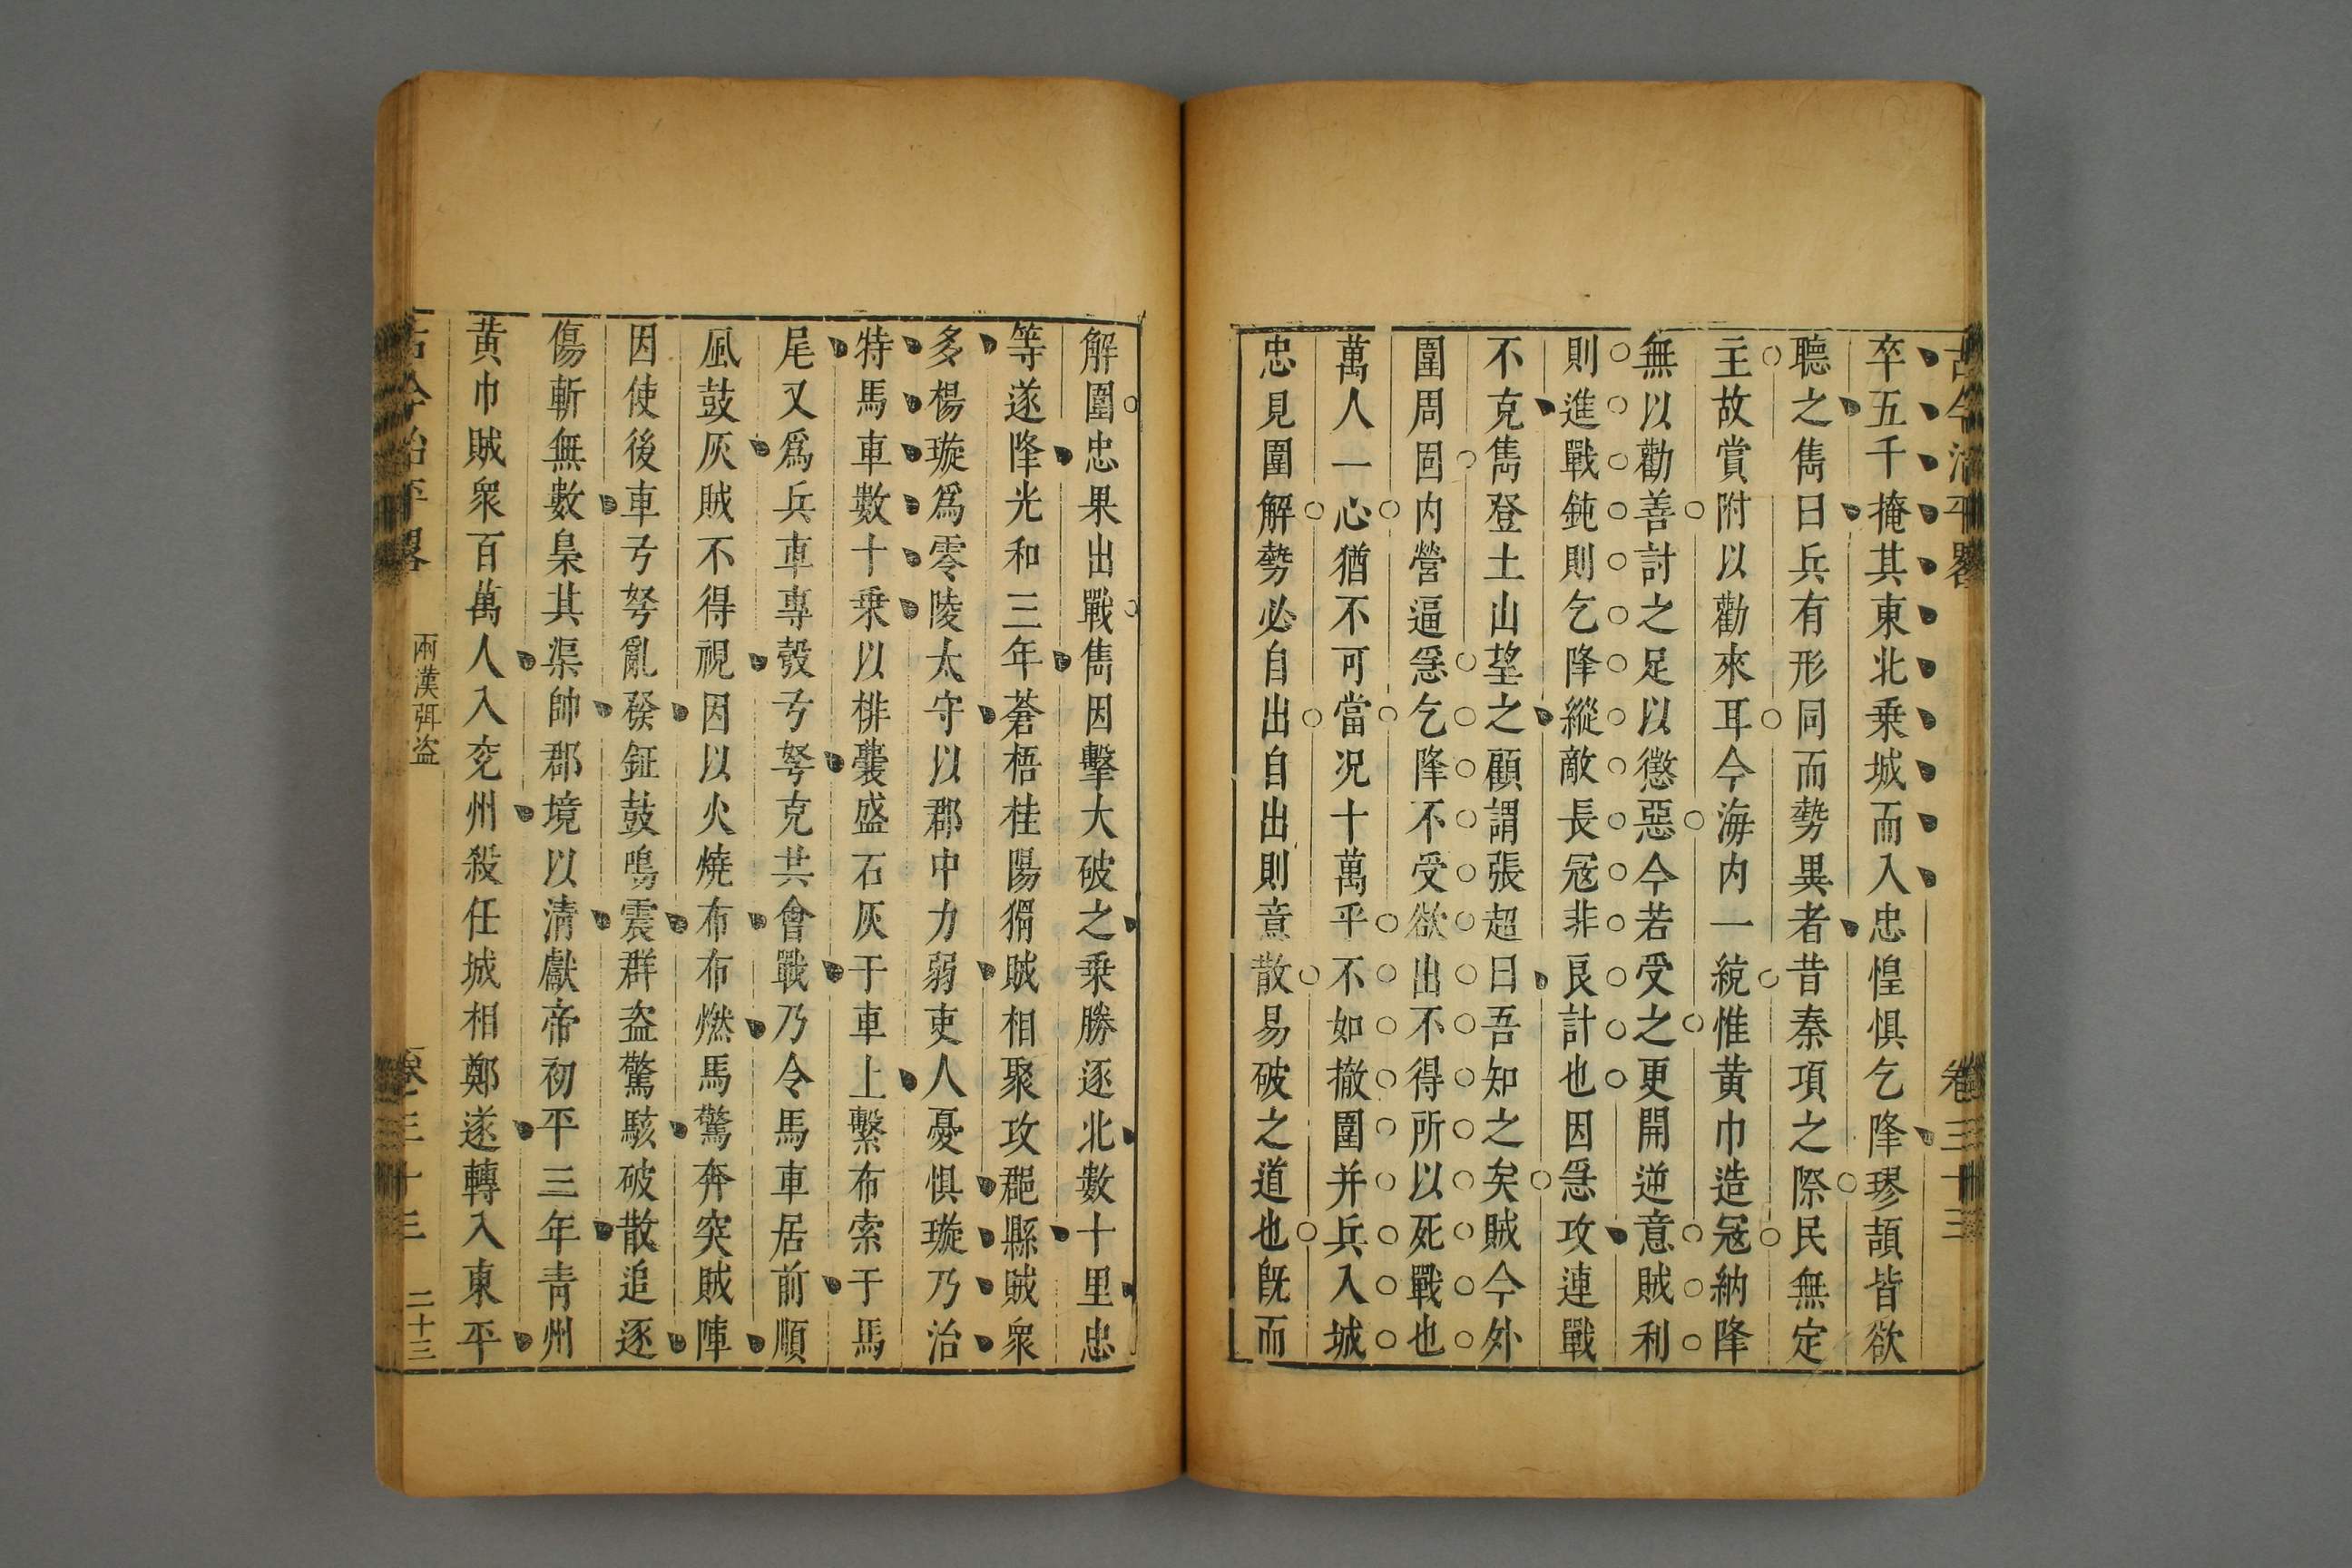 古今治平畧 卷三十三
卒五千掩其東北乗城而入忠惶惧乞降璆頡皆欲
聽之雋曰兵有形同而勢異者昔秦項之際民無定
主故賞附以勸來耳今海内一統惟黄巾造冦納降
無以勸善討之足以懲惡今若受之更開逆意賊利
則進戰鈍則乞降縱敵長冦非良計也因急攻連戰
不克雋登土山望之顧謂張超曰吾知之矣賊今外
圍周固内營逼急乞降不受欲出不得所以死戰也
萬人一心猶不可當况十萬乎不如撤圍并兵入城
忠見圍解勢必自出自出則意散易破之道也既而
解圍忠果出戰雋因擊大破之乗勝逐北數十里忠
等遂降光和三年蒼梧桂陽猾賊相聚攻郡縣賊衆
多楊璇爲零陵太守以郡中力弱吏人憂惧璇乃治
特馬車數十乗以排囊盛石灰于車上繫布索于馬
尾又爲兵車專彀弓弩克共會戰乃令馬車居前順
風鼓灰賊不得視因以火燒布布燃馬驚奔突賊陣
因使後車弓弩亂發鉦鼓鳴震群盗驚駭破散追逐
傷斬無數梟其渠帥郡境以清獻帝初平三年青州
黄巾賊衆百萬人入兖州殺任城相鄭遂轉入東平
古今治平畧 兩漢弭盗 卷三十三 二十三